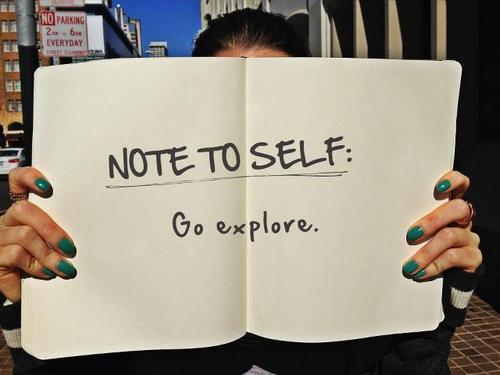 NO PARKING
2AM TO 6AM
EVERYDAY
STREET CLEANING
NOTE TO SELF:
Go explore.